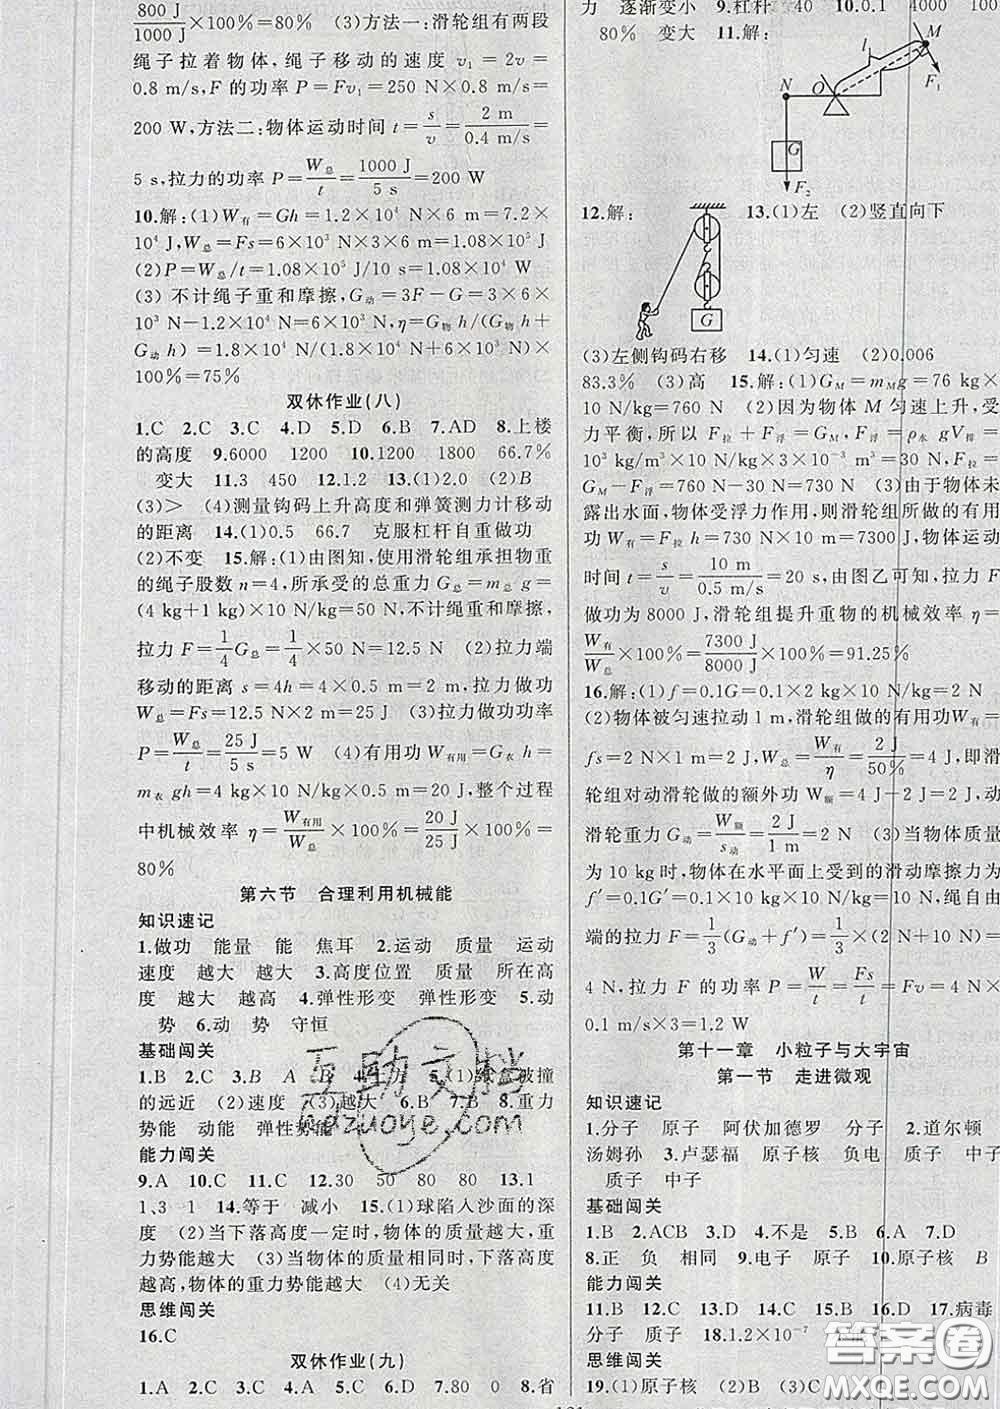 800 J/1000 J×100%=80%　(3)方法一:滑轮组有两段
绳子拉着物体,绳子移动的速度 v₁=2v=
0.8 m/s,F 的功率 P=Fv₁=250 N×0.8 m/s=
200 W,方法二:物体运动时间 t=s/v=2 m/0.4 m/s=
5 s,拉力的功率 P=W总/t=1000 J/5 s=200 W
10.解:(1)W有=Gh=1.2×10⁴ N×6 m=7.2×
10⁴ J,W总=Fs=6×10³ N×3×6 m=1.08×10⁵ J
(2)P=W总/t=1.08×10⁵ J/10 s=1.08×10⁴ W
(3)不计绳子重和摩擦,G动=3F-G=3×6×
10³ N-1.2×10⁴ N=6×10³ N,η=G物 h/(G物 h+
G动 h)=1.8×10⁴ N/(1.8×10⁴ N+6×10³ N)×
100%=75%
双休作业(八)
1.C　2.C　3.C　4.D　5.D　6.B　7.AD　8.上楼
的高度　9.6000　1200　10.1200　1800　66.7%
变大　11.3　450　12.1.2　13.(1)2.0　(2)B
(3)>　(4)测量钩码上升高度和弹簧测力计移动
的距离　14.(1)0.5　66.7　克服杠杆自重做功
(2)不变　15.解:(1)由图知,使用滑轮组承担物重
的绳子股数 n=4,所承受的总重力 G总=m总 g=
(4 kg+1 kg)×10 N/kg=50 N,不计绳重和摩擦,
拉力 F=1/4 G总=1/4×50 N=12.5 N　(2)拉力端
移动的距离 s=4h=4×0.5 m=2 m,拉力做功
W总=Fs=12.5 N×2 m=25 J　(3)拉力做功功率
P=W总/t=25 J/5 s=5 W　(4)有用功 W有用=G衣 h=
m衣 gh=4 kg×10 N/kg×0.5 m=20 J,整个过程
中机械效率 η=W有用/W总×100%=20 J/25 J×100%=
80%
第六节　合理利用机械能
知识速记
1.做功　能量　能　焦耳　2.运动　质量　运动
速度　越大　越大　3.高度位置　质量　所在高
度　越大　越高　4.弹性形变　弹性形变　5.动
势　6.动　势　守恒
基础闯关
1.B　2.C　3.B　A　4.力　5.(1)球 被撞
的远近　(2)速度　(3)越大　6.B　7.B　8.重力
势能　动能　弹性势能
能力闯关
9.A　10.C　11.C　12.30　50　80　80　13.1
1、3　1　14.等于　减小　15.(1)球陷入沙面的深
度　(2)当下落高度一定时,物体的质量越大,重
力势能越大　(3)当物体的质量相同时,下落高度
越高,物体的重力势能越大　(4)无关
思维闯关
16.C
双休作业(九)
1.A　2.C　3.C　4.B　5.C　6.D　7.80　0　8.省
力　逐渐变小　9.杠杆　40　10.0.1　4000　100
80%　变大　11.解:
l　M
N　O　F₁
G
F₂
12.解:　13.(1)左　(2)竖直向下
G
(3)左侧钩码右移　14.(1)匀速　(2)0.006
83.3%　(3)高　15.解:(1)G_M=m_M g=76 kg×
10 N/kg=760 N　(2)因为物体 M 匀速上升,受
力平衡,所以 F拉+F浮=G_M,F浮=ρ水 gV排=
10³ kg/m³×10 N/kg×3×10⁻³ m³=30 N,F拉=
G_M-F浮=760 N-30 N=730 N　(3)由于物体未
露出水面,物体受浮力作用,则滑轮组所做的有用
功 W有=F拉 h=730 N×10 m=7300 J,物体运动
时间 t=s/v=10 m/0.5 m/s=20 s,由图乙可知,拉力 F
做功为 8000 J,滑轮组提升重物的机械效率 η=
W有/W总×100%=7300 J/8000 J×100%=91.25%
16.解:(1)f=0.1G=0.1×2 kg×10 N/kg=2 N
(2)物体被匀速拉动 1 m,滑轮组做的有用功W有=
fs=2 N×1 m=2 J,W总=W有/η=2 J/50%=4 J,即滑
轮组对动滑轮做的额外功 W额=4 J-2 J=2 J,动
滑轮重力 G动=W额/s动=2 J/1 m=2 N　(3)当物体质量
为 10 kg 时,物体在水平面上受到的滑动摩擦力为
f′=0.1G′=0.1×10 kg×10 N/kg=10 N,绳自由
端的拉力 F=1/3(G动+f′)=1/3×(2 N+10 N)=
4 N,拉力 F 的功率 P=W/t=Fs/t=Fv=4 N×
0.1 m/s×3=1.2 W
第十一章　小粒子与大宇宙
第一节　走进微观
知识速记
1.分子　原子　阿伏加德罗　分子　2.道尔顿
汤姆孙　3.卢瑟福　原子核　负电　质子　中子
质子　中子
基础闯关
1.B　2.ACB　3.D　4.不是　5.B　6.A　7.D
8.正　负　相同　9.电子　原子　10.原子核　B
能力闯关
11.B　12.C　13.C　14.C　15.B　16.D　17.病毒
分子　质子　18.1.2×10⁻⁷
思维闯关
19.(1)原子核　(2)B　(3)C
互助文档
hdzuoye.com
答案圈
MXQE.COM